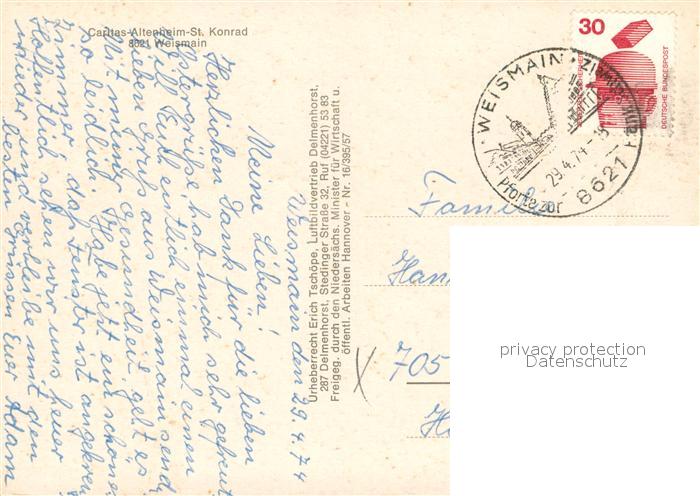 Caritas-Altenheim-St. Konrad
8621 Weismain
Weismain den 29.4.74
Meine Lieben!
Herzlichen Dank für die lieben
Ostergrüße, hab mich sehr gefreut
Will Euch endlich einmal einen
lieben Gruß aus Weismain senden
Mit meiner Gesundheit geht es
so leidlich. Habe jetzt ein schönes
Zimmer, das Fenster ist
Hoffentlich sehen wir uns heuer
wieder und verbleibe mit den
besten Grüssen Euer Adam
Urheberrecht Erich Tschöpe, Luftbildvertrieb Delmenhorst,
287 Delmenhorst, Stedinger Straße 32, Ruf (04221) 53 83
Freigeg. durch den Niedersächs. Minister für Wirtschaft u.
öffentl. Arbeiten Hannover - Nr. 16/395/57
30
DEUTSCHE BUNDESPOST
WEISMAIN
29.4.74
8621
Pforte zur
Familie
705
privacy protection
Datenschutz